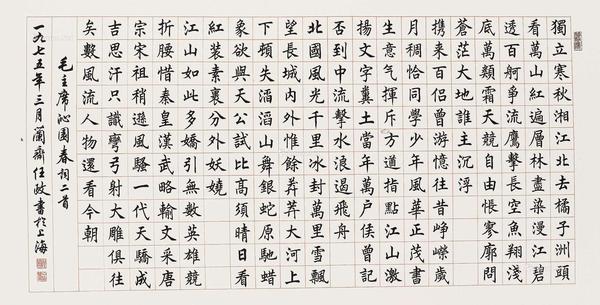 獨立寒秋湘江北去橘子洲頭
看萬山紅遍層林盡染漫江碧
透百舸爭流鷹擊長空魚翔淺
底萬類霜天競自由悵寥廓問
蒼茫大地誰主沉浮
攜來百侶曾游憶往昔崢嶸歲
月稠恰同學少年風華正茂書
生意氣揮斥方遒指點江山激
揚文字糞土當年萬户侯曾記
否到中流擊水浪遏飛舟
北國風光千里冰封萬里雪飄
望長城內外惟餘莽莽大河上
下頓失滔滔山舞銀蛇原馳蠟
象欲與天公試比高須晴日看
紅裝素裹分外妖嬈
江山如此多嬌引無數英雄競
折腰惜秦皇漢武略輸文采唐
宗宋祖稍遜風騷一代天驕成
吉思汗只識彎弓射大雕俱往
矣數風流人物還看今朝
毛主席沁園春詞二首
一九七五年三月蘭齋任政書於上海